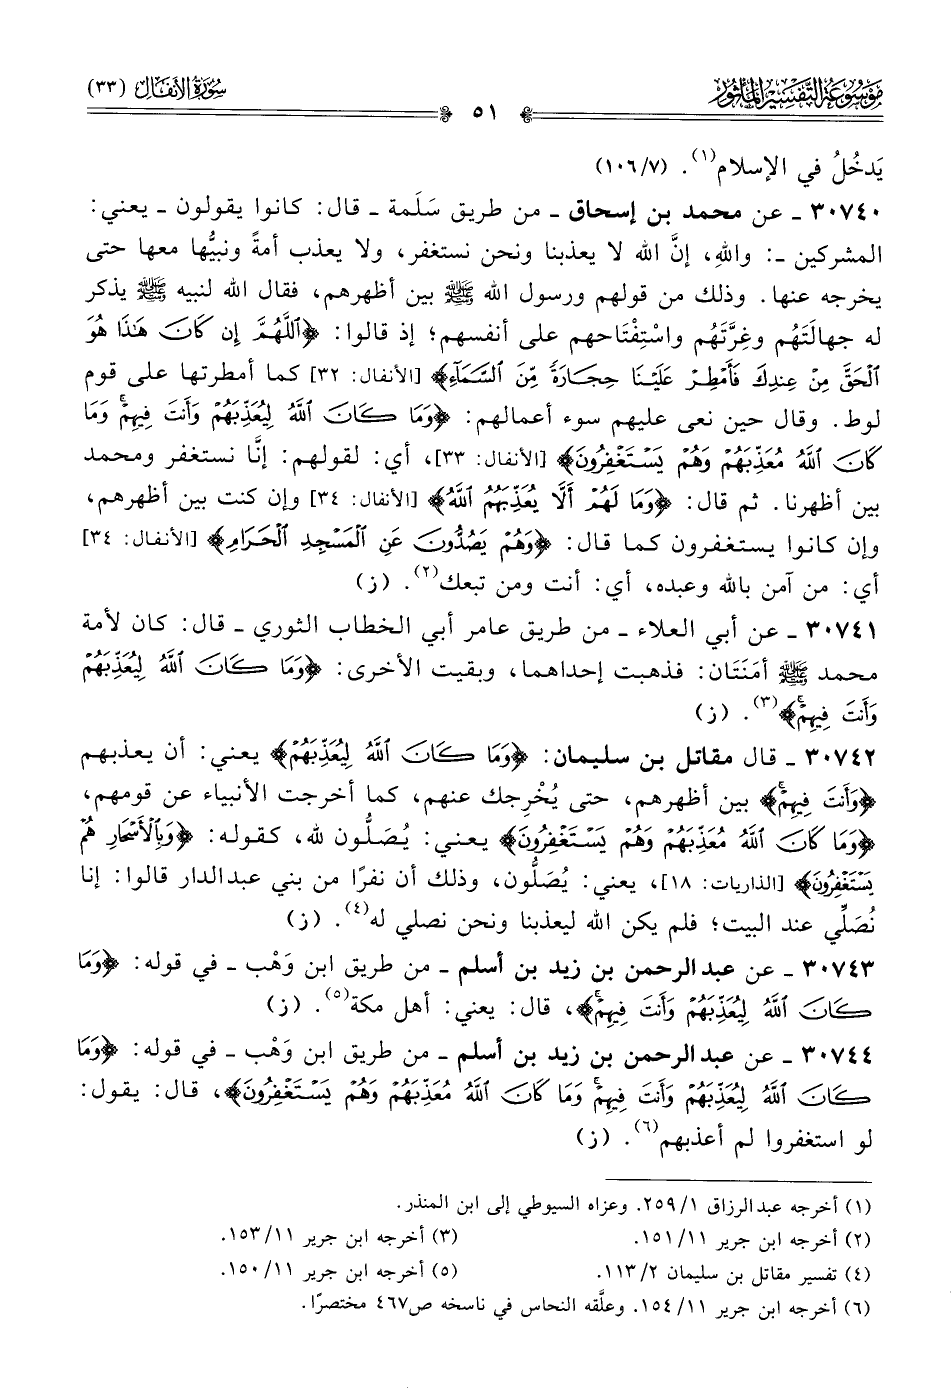 مَوْسُوعَة التَّفْسِير المَأثُور
٥١
سُورَةُ الأَنفَال (٣٣)
يَدخُلُ في الإسلام(١). (٧/ ١٠٦)
٣٠٧٤٠ ـ عن محمد بن إسحاق ـ من طريق سَلَمة ـ قال: كانوا يقولون ـ يعني:
المشركين ـ: واللهِ، إنَّ الله لا يعذبنا ونحن نستغفر، ولا يعذب أمةً ونبيُّها معها حتى
يخرجه عنها. وذلك من قولهم ورسول الله ﷺ بين أظهرهم، فقال الله لنبيه ﷺ يذكر
له جهالَتَهُم وغِرَّتَهُم واسْتِفْتَاحهم على أنفسهم؛ إذ قالوا: ﴿ٱللَّهُمَّ إِن كَانَ هَٰذَا هُوَ
ٱلْحَقَّ مِنْ عِندِكَ فَأَمْطِرْ عَلَيْنَا حِجَارَةً مِّنَ ٱلسَّمَآءِ﴾ [الأنفال: ٣٢] كما أمطرتها على قوم
لوط. وقال حين نعى عليهم سوء أعمالهم: ﴿وَمَا كَانَ ٱللَّهُ لِيُعَذِّبَهُمْ وَأَنتَ فِيهِمْۚ وَمَا
كَانَ ٱللَّهُ مُعَذِّبَهُمْ وَهُمْ يَسْتَغْفِرُونَ﴾ [الأنفال: ٣٣]، أي: لقولهم: إنَّا نستغفر ومحمد
بين أظهرنا. ثم قال: ﴿وَمَا لَهُمْ أَلَّا يُعَذِّبَهُمُ ٱللَّهُ﴾ [الأنفال: ٣٤] وإن كنت بين أظهرهم،
وإن كانوا يستغفرون كما قال: ﴿وَهُمْ يَصُدُّونَ عَنِ ٱلْمَسْجِدِ ٱلْحَرَامِ﴾ [الأنفال: ٣٤]
أي: من آمن بالله وعبده، أي: أنت ومن تبعك(٢). (ز)
٣٠٧٤١ ـ عن أبي العلاء ـ من طريق عامر أبي الخطاب الثوري ـ قال: كان لأمة
محمد ﷺ أمَنَتَان: فذهبت إحداهما، وبقيت الأخرى: ﴿وَمَا كَانَ ٱللَّهُ لِيُعَذِّبَهُمْ
وَأَنتَ فِيهِمْۚ﴾(٣). (ز)
٣٠٧٤٢ ـ قال مقاتل بن سليمان: ﴿وَمَا كَانَ ٱللَّهُ لِيُعَذِّبَهُمْ﴾ يعني: أن يعذبهم
﴿وَأَنتَ فِيهِمْۚ﴾ بين أظهرهم، حتى يُخْرِجك عنهم، كما أخرجت الأنبياء عن قومهم،
﴿وَمَا كَانَ ٱللَّهُ مُعَذِّبَهُمْ وَهُمْ يَسْتَغْفِرُونَ﴾ يعني: يُصَلُّون لله، كقوله: ﴿وَبِٱلْأَسْحَارِ هُمْ
يَسْتَغْفِرُونَ﴾ [الذاريات: ١٨]، يعني: يُصَلُّون، وذلك أن نفرًا من بني عبدالدار قالوا: إنا
نُصَلِّي عند البيت؛ فلم يكن الله ليعذبنا ونحن نصلي له(٤). (ز)
٣٠٧٤٣ ـ عن عبدالرحمن بن زيد بن أسلم ـ من طريق ابن وَهْب ـ في قوله: ﴿وَمَا
كَانَ ٱللَّهُ لِيُعَذِّبَهُمْ وَأَنتَ فِيهِمْۚ﴾، قال: يعني: أهل مكة(٥). (ز)
٣٠٧٤٤ ـ عن عبدالرحمن بن زيد بن أسلم ـ من طريق ابن وَهْب ـ في قوله: ﴿وَمَا
كَانَ ٱللَّهُ لِيُعَذِّبَهُمْ وَأَنتَ فِيهِمْۚ وَمَا كَانَ ٱللَّهُ مُعَذِّبَهُمْ وَهُمْ يَسْتَغْفِرُونَ﴾، قال: يقول:
لو استغفروا لم أعذبهم(٦). (ز)
(١) أخرجه عبدالرزاق ١/ ٢٥٩. وعزاه السيوطي إلى ابن المنذر.
(٢) أخرجه ابن جرير ١١/ ١٥١.
(٣) أخرجه ابن جرير ١١/ ١٥٣.
(٤) تفسير مقاتل بن سليمان ٢/ ١١٣.
(٥) أخرجه ابن جرير ١١/ ١٥٠.
(٦) أخرجه ابن جرير ١١/ ١٥٤. وعلَّقه النحاس في ناسخه ص٤٦٧ مختصرًا.